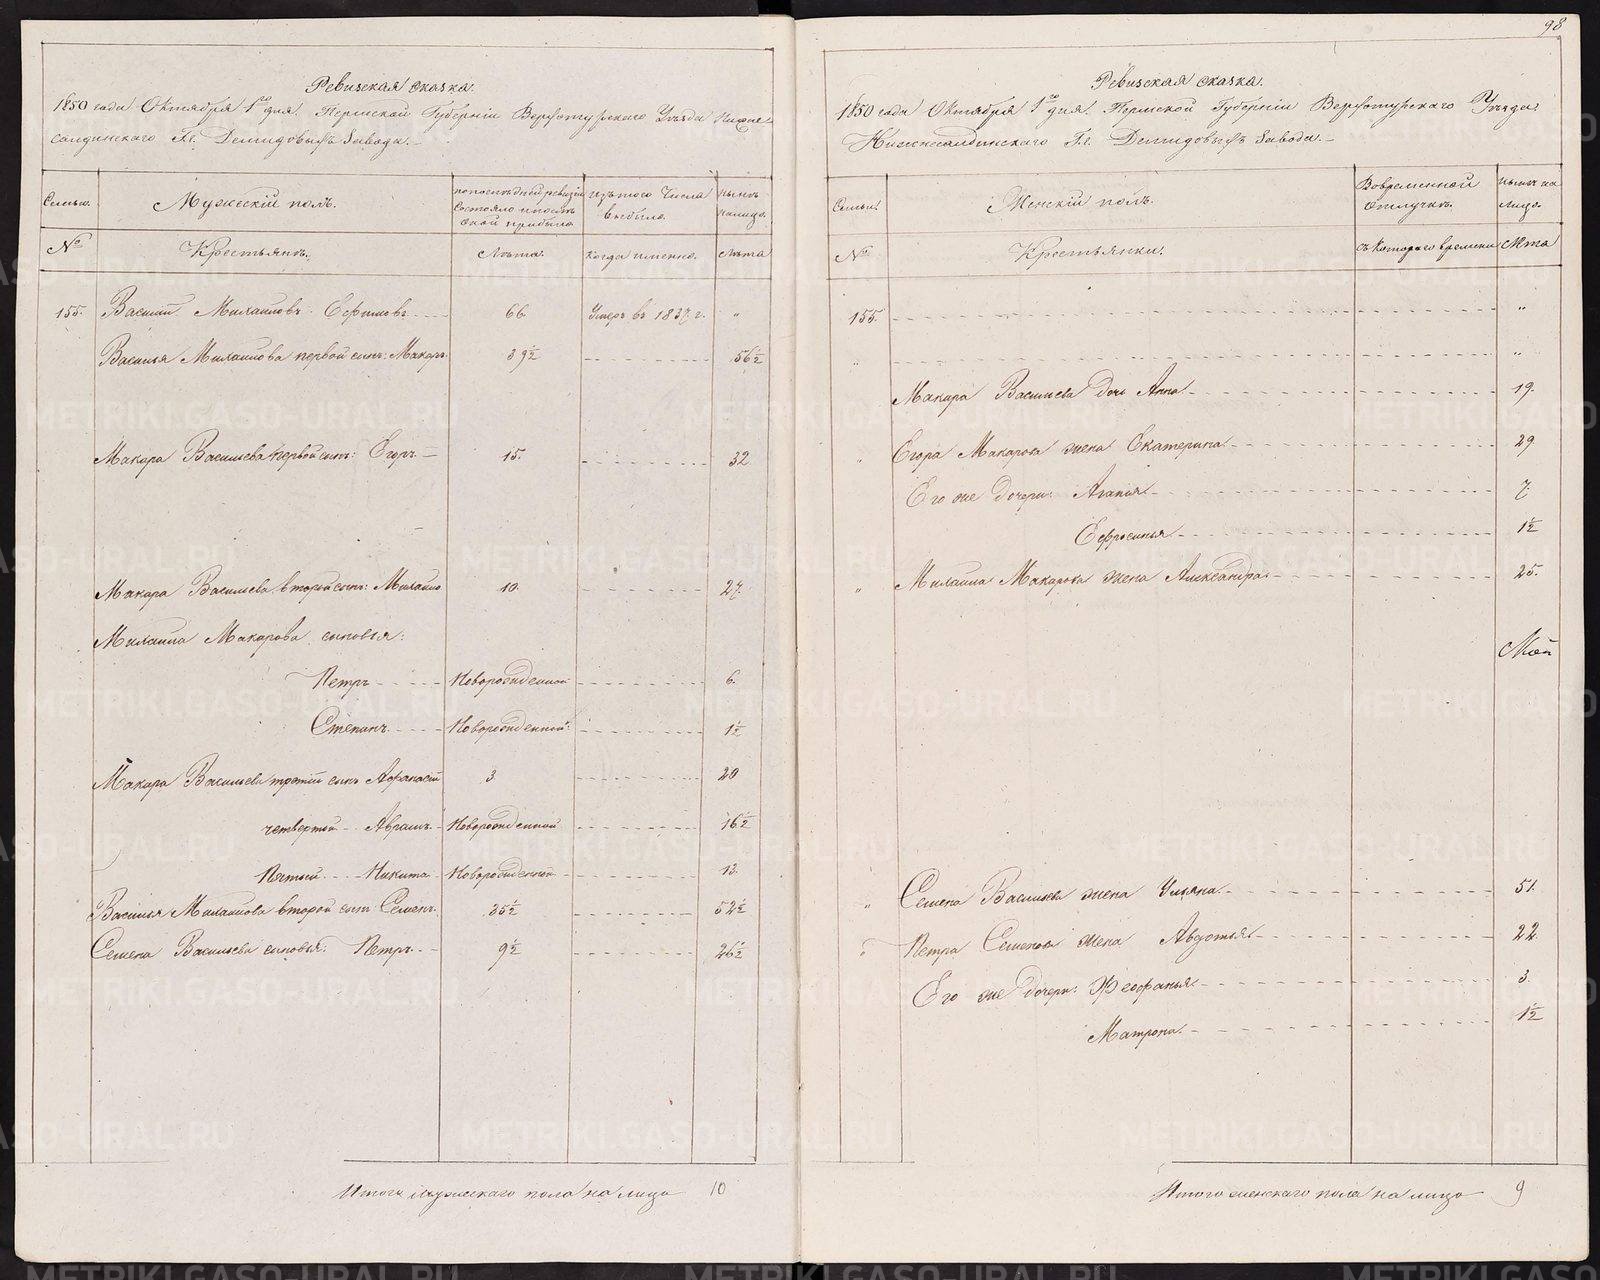 98
Ревизская сказка.
1850 года Октября 1го дня. Пермской Губерніи Верхотурскаго Уѣзда Нижне-
салдинскаго Гг. Демидовыхъ Завода.
Семьи.
Мужескій полъ.
По послѣдней ревизіи состояло и послѣ оной прибыло
Изъ того числа выбыло.
Нынѣ на лицо.
№
Крестьянъ.
Лѣта.
Когда именно.
Лѣта
155. Василій Михайловъ Ефимовъ 66. Умеръ въ 1837 г. "
Василья Михайлова первой сынъ: Макаръ 39½ 56½
Макара Васильева первой сынъ: Егоръ 15. 32
Макара Васильева второй сынъ: Михайло 10. 27.
Михаила Макарова сыновья:
Петръ Новорожденной 6.
Степанъ Новорожденной 1½
Макара Васильева третій сынъ Афанасій 3 20
четвертой Абрамъ Новорожденной 16½
Пятый Никита Новорожденной 13.
Василья Михайлова второй сынъ Семенъ 35½ 52½
Семена Васильева сыновья: Петръ 9½ 26½
Итого мужескаго пола на лицо 10
Ревизская сказка.
1850 года Октября 1го дня. Пермской Губерніи Верхотурскаго Уѣзда
Нижнесалдинскаго Гг. Демидовыхъ Завода.
Семьи
Женскій полъ.
Во временной отлучкѣ.
Нынѣ на лицо.
№
Крестьянки.
Съ котораго времени
Лѣта
155. "
"
Макара Васильева дочь Анна 19.
Егора Макарова жена Екатерина 29
Его же дочери: Агапья 7.
Ефросинья 1½
" Михаила Макарова жена Александра 25.
" Семена Васильева жена Ульяна 51.
" Петра Семенова жена Авдотья 22.
Его же дочери: Феофанья 3.
Матрона 1½
Итого женскаго пола на лицо 9
METRIKI.GASO-URAL.RU